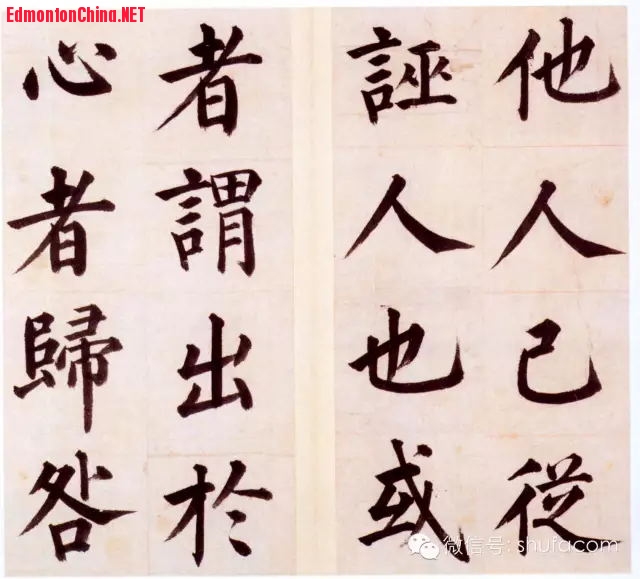 EdmontonChina.NET
他人已從
誣人也或
者謂出於
心者歸咎
微信号: shufacom